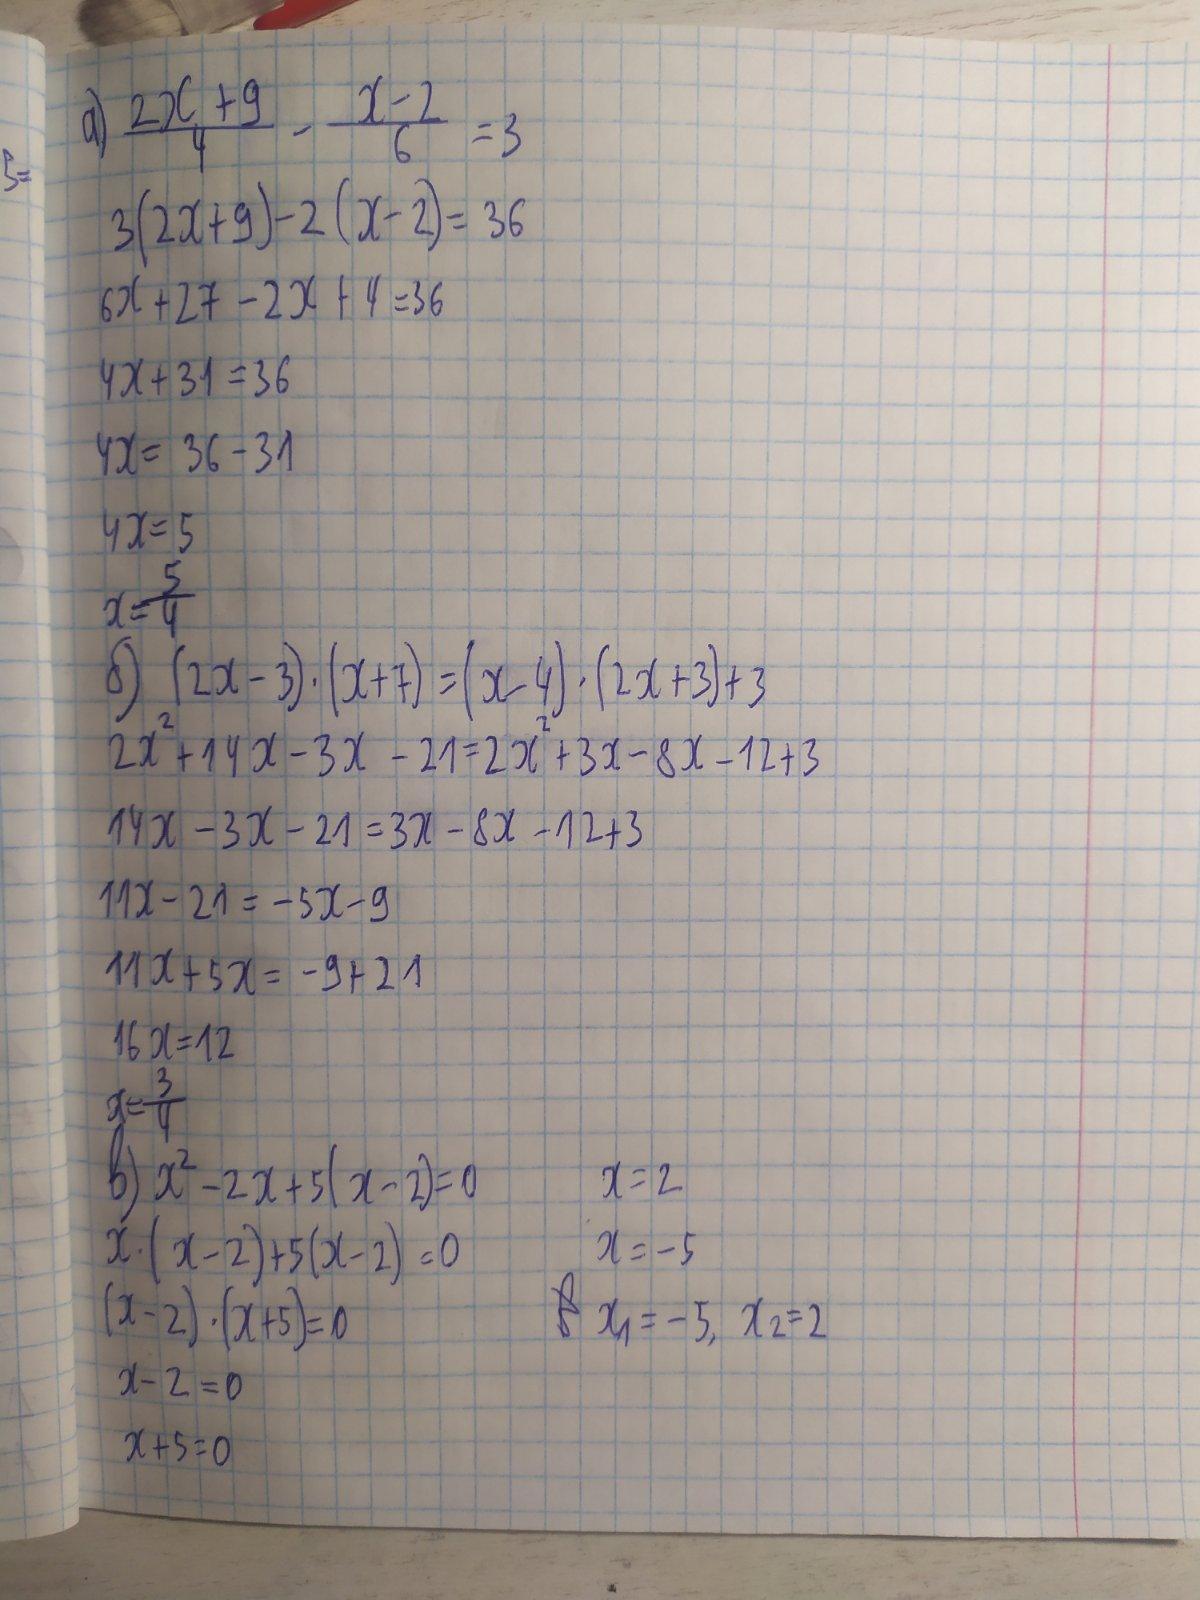 5=
а) (2x+9)/4 - (x-2)/6 = 3
3(2x+9)-2(x-2)=36
6x+27-2x+4=36
4x+31=36
4x=36-31
4x=5
x=5/4
б) (2x-3)·(x+7)=(x-4)·(2x+3)+3
2x²+14x-3x-21=2x²+3x-8x-12+3
14x-3x-21=3x-8x-12+3
11x-21=-5x-9
11x+5x=-9+21
16x=12
x=3/4
в) x²-2x+5(x-2)=0
x·(x-2)+5(x-2)=0
(x-2)·(x+5)=0
x-2=0
x+5=0
x=2
x=-5
x₁=-5, x₂=2